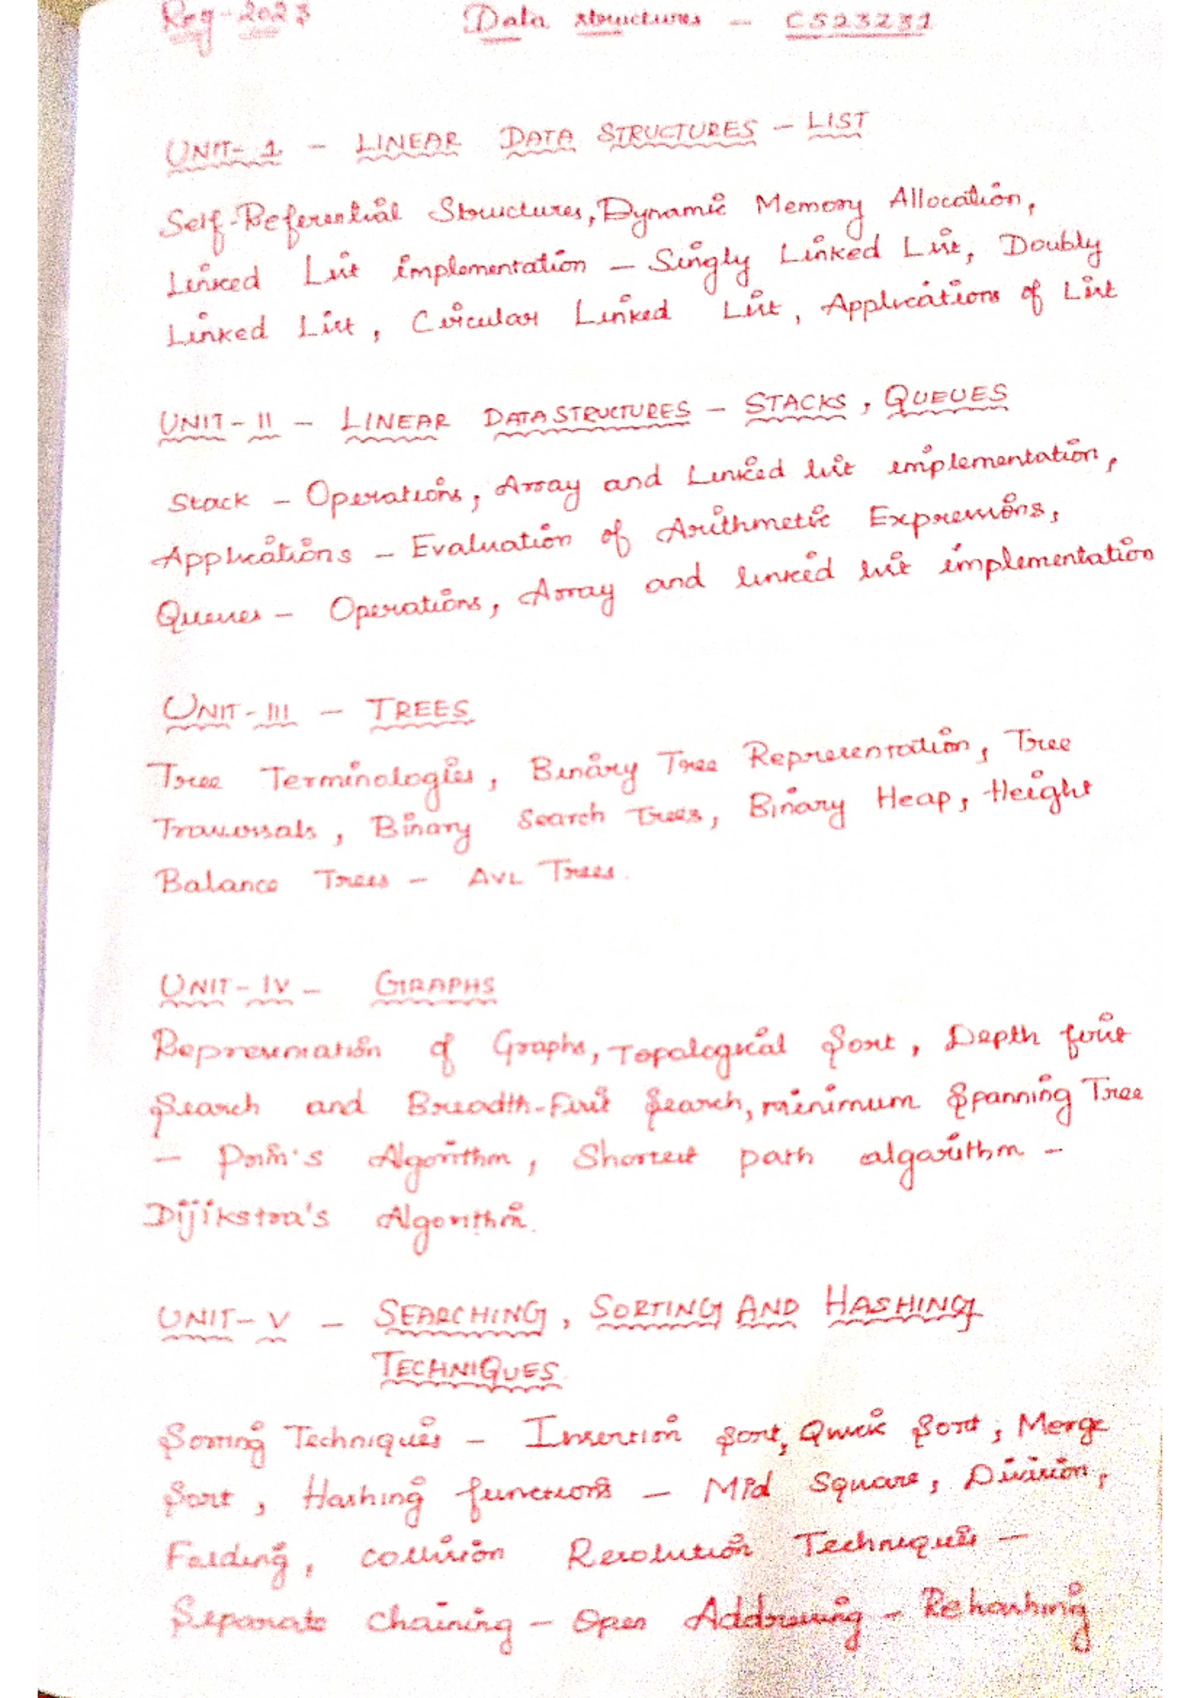 Reg-2023 Data structures - CS23231
UNIT-1 - LINEAR DATA STRUCTURES - LIST
Self-Referential Structures, Dynamic Memory Allocation,
Linked List implementation - Singly Linked List, Doubly
Linked List, Circular Linked List, Applications of List
UNIT-II - LINEAR DATA STRUCTURES - STACKS, QUEUES
Stack - Operations, Array and Linked list implementation,
Applications - Evaluation of Arithmetic Expressions,
Queues - Operations, Array and linked list implementation
UNIT-III - TREES
Tree Terminologies, Binary Tree Representation, Tree
Traversals, Binary Search Trees, Binary Heap, Height
Balance Trees - AVL Trees.
UNIT-IV - GRAPHS
Representation of Graphs, Topological Sort, Depth first
Search and Breadth-First Search, minimum Spanning Tree
- Prim's Algorithm, Shortest path algorithm -
Dijikstra's Algorithm.
UNIT-V - SEARCHING, SORTING AND HASHING
TECHNIQUES.
Sorting Techniques - Insertion Sort, Quick Sort, Merge
Sort, Hashing functions - Mid Square, Division,
Folding, Collision Resolution Techniques -
Separate Chaining - Open Addressing - Rehashing